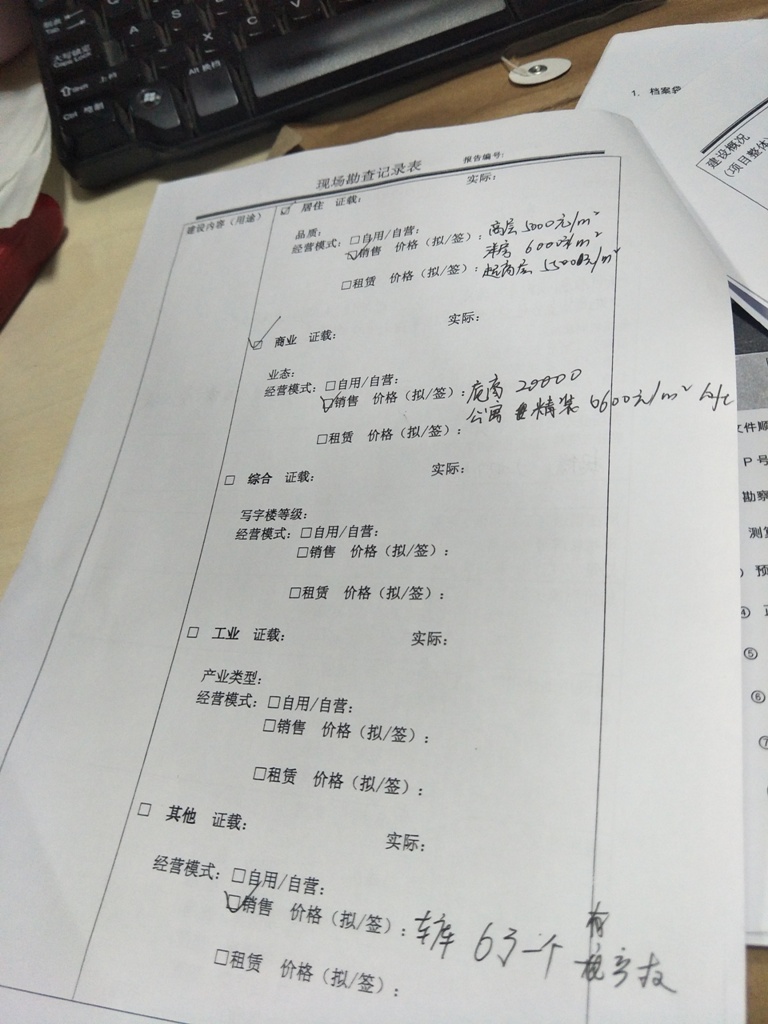 大写锁定
Caps Lock
Shift 上档
Ctrl 控制
Alt 换档
A
S
Z
X
C
V
1. 档案
建设概况
(项目整体)
现场勘查记录表
报告编号:
建设内容（用途）
☑ 居住 证载: 实际:
品质:
经营模式: □自用/自营: 高层 5000元/m²
☑销售 价格（拟/签）: 洋房 6000元/m²
□租赁 价格（拟/签）: 超高层 5500元/m²
☑ 商业 证载: 实际:
业态:
经营模式: □自用/自营:
☑销售 价格（拟/签）: 底商 20000
公寓 精装 6600元/m²
□租赁 价格（拟/签）:
□ 综合 证载: 实际:
写字楼等级:
经营模式: □自用/自营:
□销售 价格（拟/签）:
□租赁 价格（拟/签）:
□ 工业 证载: 实际:
产业类型:
经营模式: □自用/自营:
□销售 价格（拟/签）:
□租赁 价格（拟/签）:
□ 其他 证载: 实际:
经营模式: □自用/自营:
☑销售 价格（拟/签）: 车库 6万一个 有
□租赁 价格（拟/签）:
文件顺
P 号
勘察
测算
) 预
④
⑤
⑥
⑦